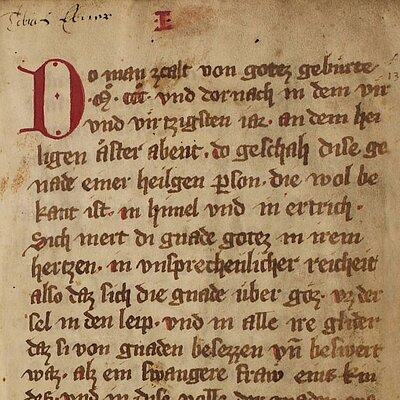 I
Do man zealt von gotez gebürte
·M· ccc· vnd dornach in dem vir
vnd virtzigsten iar· an dem hei
ligen aͤster abent· do geschah dise ge
nade einer heilgen pson· die wol be
kant ist· in himel vnd in ertrich·
Sich mert di gnade gotez in irem
hertzen· in vnsprechenlicher reicheit
also daz sich die gnade über göz· vz der
sel in den leip· vnd in alle ire glider
daz si von gnaden besezzen vn̄ beswert
waz· alz ein swangere fraw eins kin
des· vnd in diser volle der gnaden